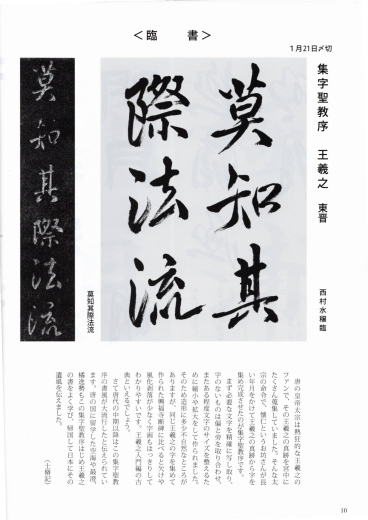 ＜臨　書＞
１月21日〆切
集字聖教序　王羲之　東晋
西村水穣臨
莫知其
際法流
莫知其際法流
莫知其際法流
唐の皇帝太宗は熱狂的な王羲之の
ファンで、その王羲之の真跡を宮中に
たくさん蒐集していました。そんな太
宗の命令で、懐仁というお坊さんが長
い年月をかけて王羲之の真跡から字を
集め完成させたのが集字聖教序です。
まず必要な文字を精確に写し取り、
字のないものは偏と旁を取り合わせ、
またある程度文字のサイズを整えるた
めに縮小や拡大をして作られました。
そのため造形に多少不自然なところが
ありますが、同じ王羲之の字を集めて
作られた興福寺断碑に比べると欠けや
風化剥落が少なく字画もはっきりして
わかりやすいです。王羲之入門編の古
典といえるでしょう。
さて唐代の中期以降はこの集字聖教
序の書風が大流行したと伝えられてい
ます。唐の国に留学した空海や最澄、
橘逸勢もこの集字聖教序はじめ王羲之
の書をよく学び、帰国して日本にその
遺風を伝えました。